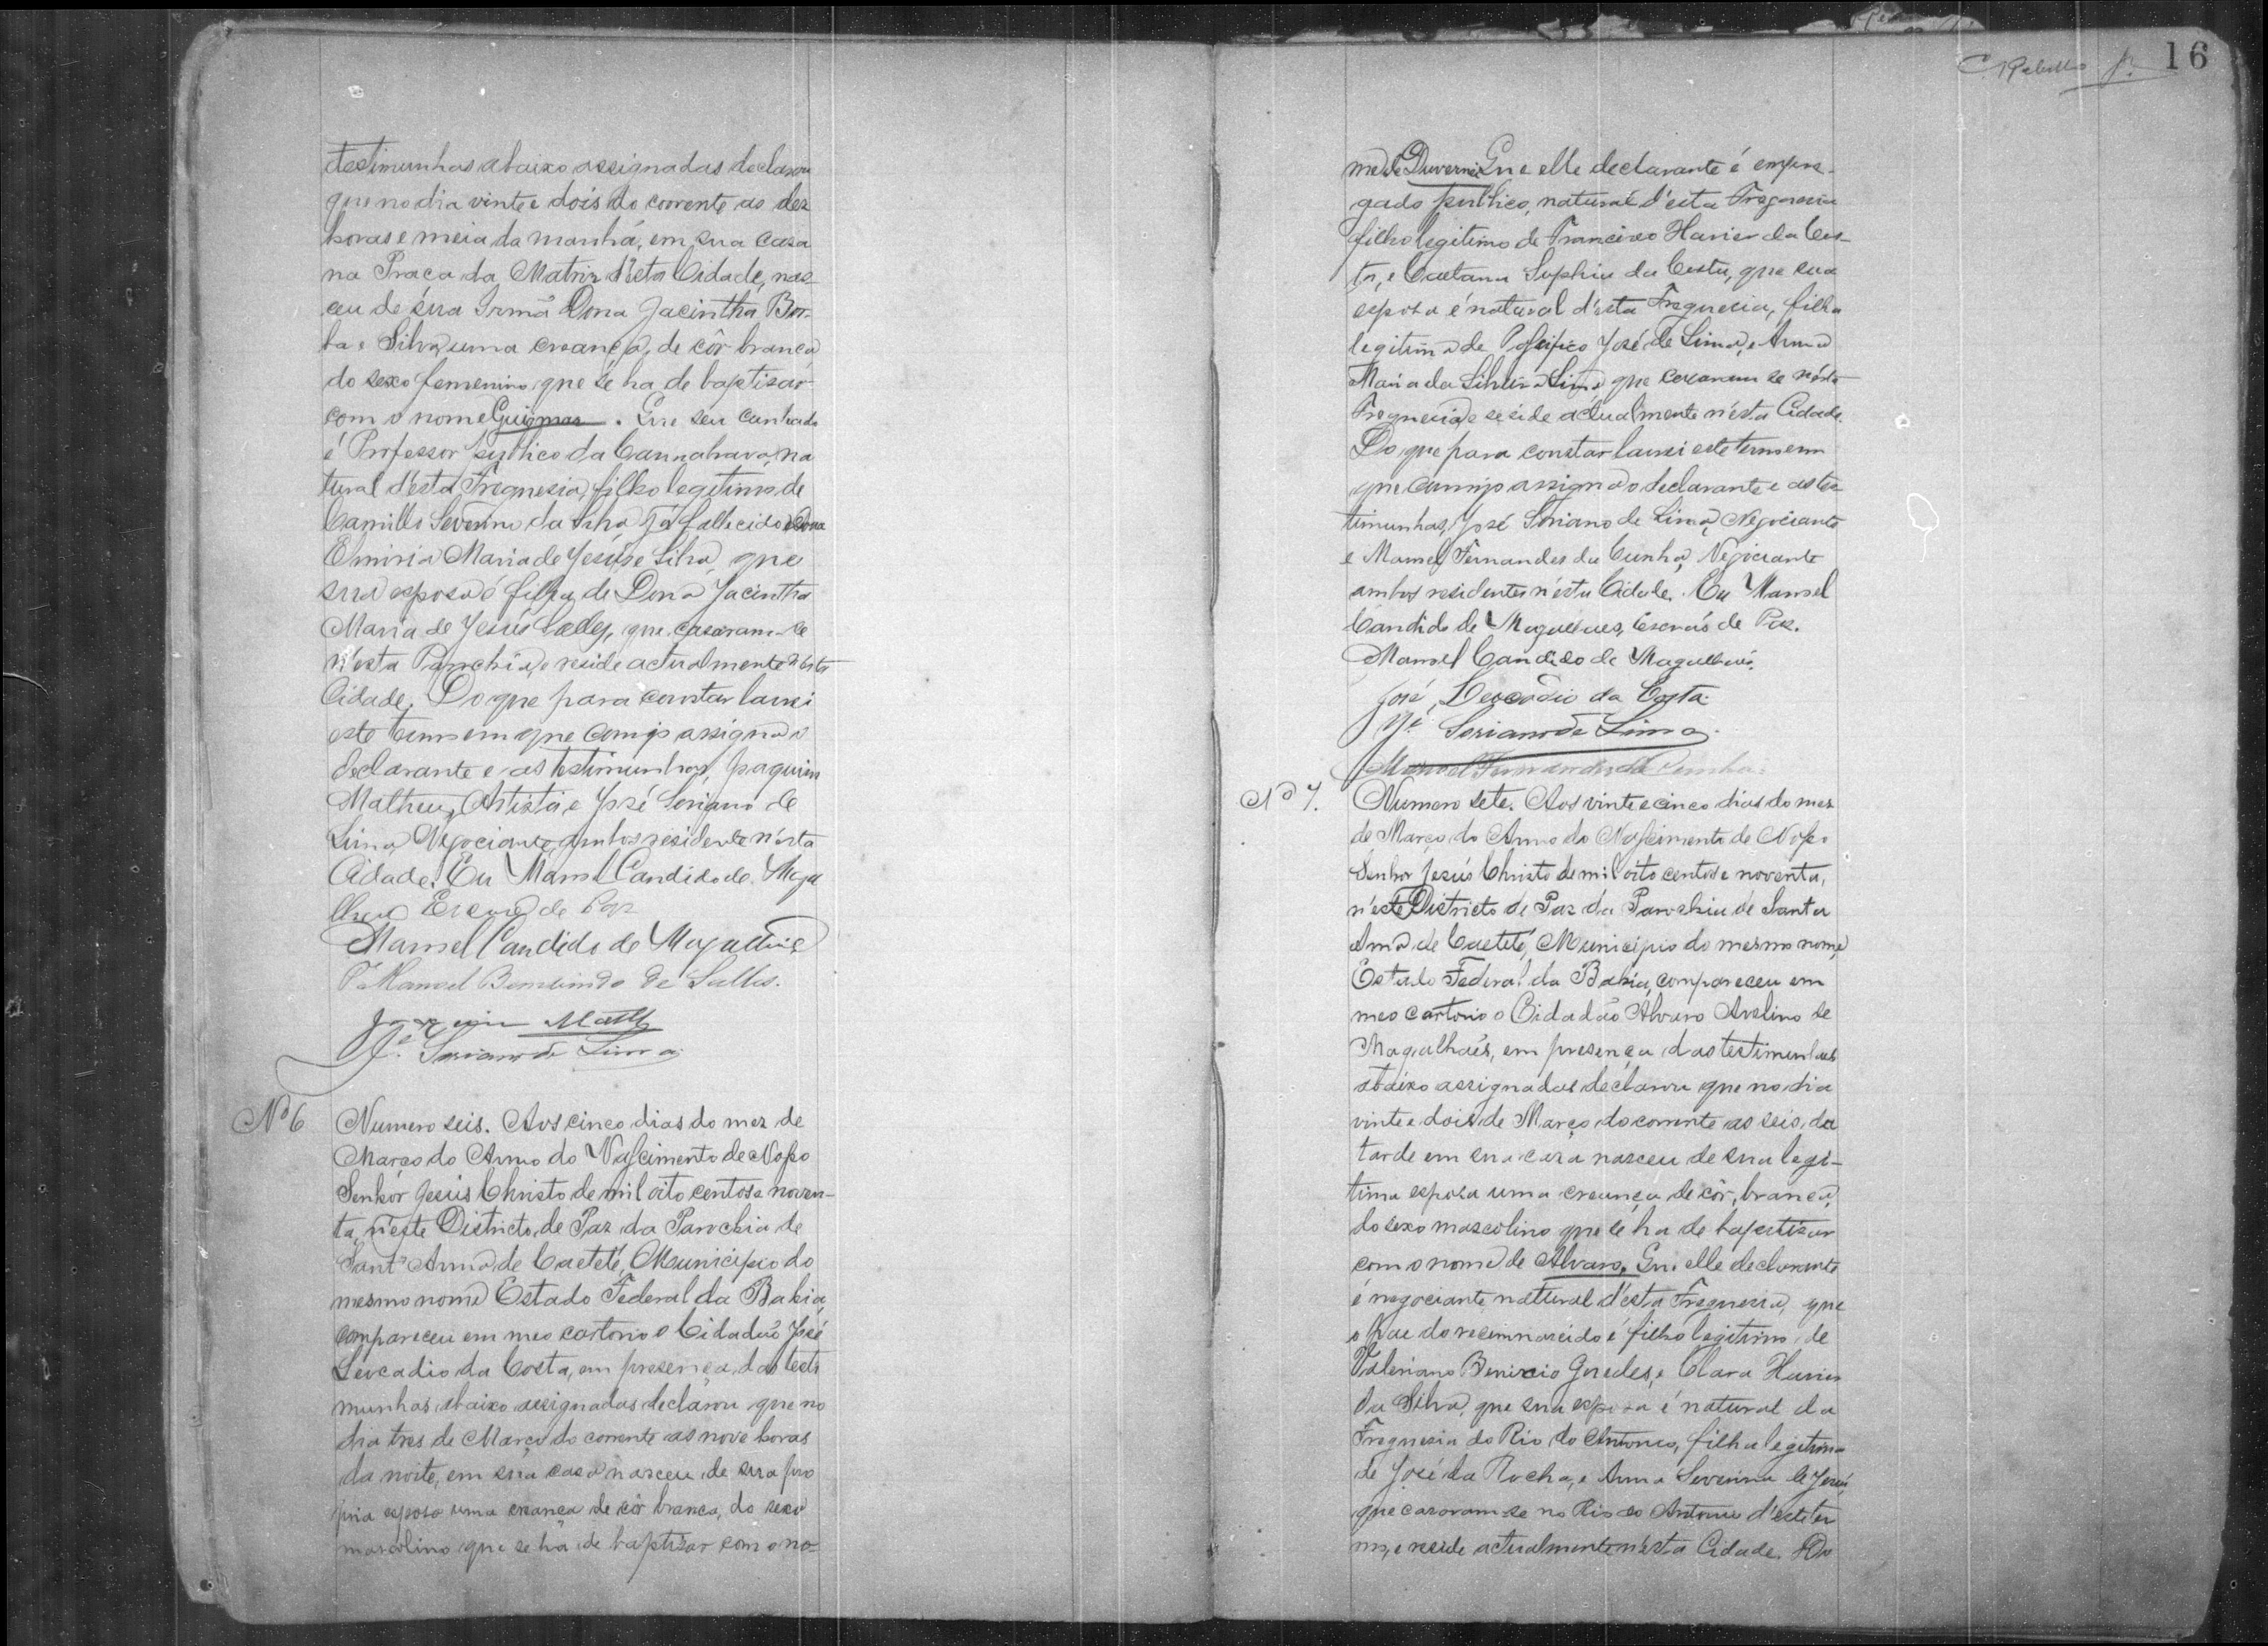 testimunhas abaixo assignadas declarou
que no dia vinte e dois do corrente as dez
horas e meia da manhã, em sua casa
na Praça da Matriz d'esta Cidade, nas-
ceu de sua Irmã Dona Jacintha Bor-
ba e Silva, uma creança, de côr branca
do sexo femenino que se ha de baptisar
com o nome Guiomar. Que seu cunhado
é Professor publico da Cannabrava, na
tural d'esta Freguesia, filho legitimo de
Camillo Severino da Silva, já fallecido e Dona
Maria de Jesús e Silva, que
sua esposa é filha de Dona Jacintha
Maria de Jesús, que casaram-se
n'esta Parochia, e reside actualmente n'esta
Cidade. Do que para constar lavrei
este termo em que comigo assigna o
declarante e as testimunhas, Joaquim
Matheus, Artista, e José Soriano de
Lima, Negociante, ambos residente n'esta
Cidade. Eu Manoel Candido de Maga
lhães Escrivã de Paz
Manoel Candido de Magalhães
Pe Manoel Bemvindo de Salles.
Joaquim Math
Je. Soriano de Lima
No 6
Numero seis. Aos cinco dias do mez de
Março do Anno do Nascimento de Nosso
Senhor Jesús Christo de mil oito centos e noven-
ta, n'este Districto de Paz da Parochia de
Sant'Anna de Caeteté, Municipio do
mesmo nome Estado Federal da Bahia,
compareceu em meo cartorio o Cidadão José
Leocadio da Costa, em presença das testi
munhas abaixo assignadas declarou que no
dia tres de Março do corrente as nove horas
da noite, em sua casa nasceu de sua pro
pria esposa uma creança de côr branca, do sexo
masculino que se ha de baptizar com o no-
C Rebello Jr. 16
me de Que elle declarante é empre-
gado publico, natural d'esta Freguesia
filho legitimo de Francisco Xavier da Cos-
ta, e Caetana Sophia da Costa, que sua
esposa é natural d'esta Freguesia, filha
legitima de Pacifico José de Lima, e Anna
Maria da Silveira Lima, que casaram se n'esta
Freguesia e reside actualmente n'esta Cidade.
Do que para constar lavrei este termo em
que comigo assigna o declarante e as tes
timunhas, José Soriano de Lima, Negociante
e Manoel Fernandes da Cunha, Negociante
ambos residentes n'esta Cidade. Eu Manoel
Candido de Magalhães, Escrivãs de Paz.
Manoel Candido de Magalhães.
José Leocadio da Costa
Je. Soriano de Lima
Manoel Fernandes da Cunha.
No 7.
Numero sete. Aos vinte e cinco dias do mez
de Março do Anno do Nascimento de Nosso
Senhor Jesús Christo de mil oito centos e noventa,
n'este Districto de Paz da Parochia de Santa
Anna de Caeteté, Municipio do mesmo nome,
Estado Federal da Bahia, compareceu em
meo cartorio o Cidadão Alvaro Avelino de
Magalhães, em presença das testimunhas
abaixo assignadas declarou que no dia
vinte e dois de Março do corrente as seis da
tarde em sua casa nasceu de sua legi-
tima esposa uma creança de côr, branca,
do sexo mascolino que se ha de baptisar
com o nome de Alvaro. Que elle declarante
é negociante natural d'esta Freguesia, que
o pae do recemnascido é filho legitimo de
Valeriano Benicio Guedes, e Clara Xavier
da Silva, que sua esposa é natural da
Freguesia do Rio do Antonio, filha legitima
de José da Rocha, e Anna Severina de Jesús,
que casaram-se no Rio do Antonio d'este ter
mo, e reside actualmente n'esta Cidade. Do